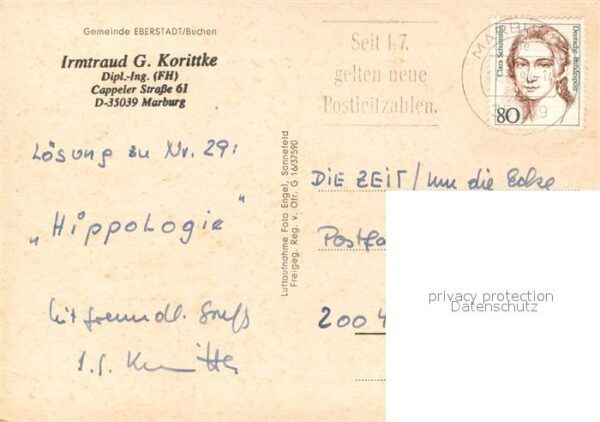 Gemeinde EBERSTADT/Buchen
Irmtraud G. Korittke
Dipl.-Ing. (FH)
Cappeler Straße 61
D-35039 Marburg
Lösung zu Nr. 29:
„Hippologie"
Mit freundl. Gruß
I.G. Korittke
Luftaufnahme Foto Engel, Sonnefeld
Freigeg. Reg. v. Ofr. G 16/37590
Seit 1.7.
gelten neue
Postleitzahlen.
MARBURG
Clara Schumann
Deutsche Bundespost
80
DIE ZEIT / Um die Ecke
Postfa
2000
privacy protection
Datenschutz